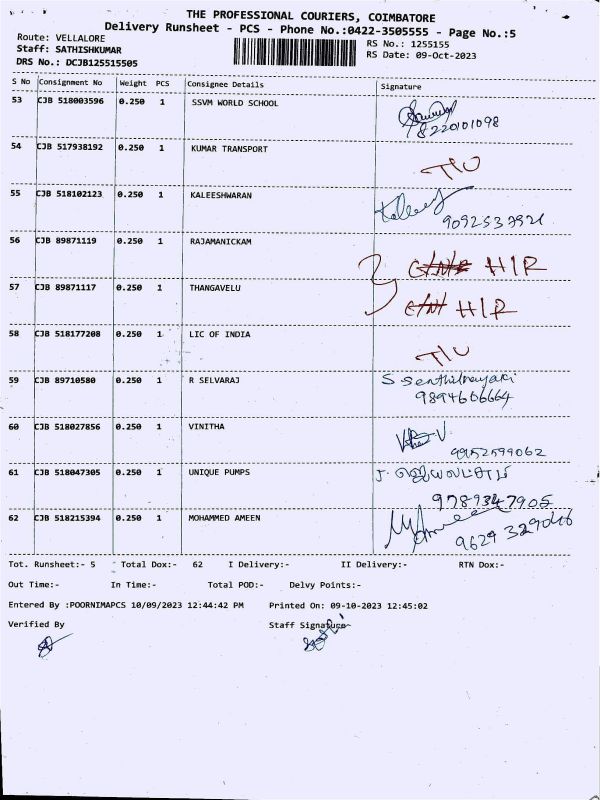 THE PROFESSIONAL COURIERS, COIMBATORE
Delivery Runsheet - PCS - Phone No.:0422-3505555 - Page No.:5
Route: VELLALORE
RS No.: 1255155
Staff: SATHISHKUMAR
RS Date: 09-Oct-2023
DRS No.: DCJB125515505
S No Consignment No Weight PCS Consignee Details Signature
53 CJB 518003596 0.250 1 SSVM WORLD SCHOOL
8220101098
54 CJB 517938192 0.250 1 KUMAR TRANSPORT
T/U
55 CJB 518102123 0.250 1 KALEESHWARAN
56 CJB 89871119 0.250 1 RAJAMANICKAM
H/R
57 CJB 89871117 0.250 1 THANGAVELU
H/R
58 CJB 518177208 0.250 1 LIC OF INDIA
T/U
59 CJB 89710580 0.250 1 R SELVARAJ
S Senthilnayaki
9894606664
60 CJB 518027856 0.250 1 VINITHA
9952599062
61 CJB 518047305 0.250 1 UNIQUE PUMPS
9789347905
62 CJB 518215394 0.250 1 MOHAMMED AMEEN
Tot. Runsheet:- 5 Total Dox:- 62 I Delivery:- II Delivery:- RTN Dox:-
Out Time:- In Time:- Total POD:- Delvy Points:-
Entered By :POORNIMAPCS 10/09/2023 12:44:42 PM Printed On: 09-10-2023 12:45:02
Verified By Staff Signature